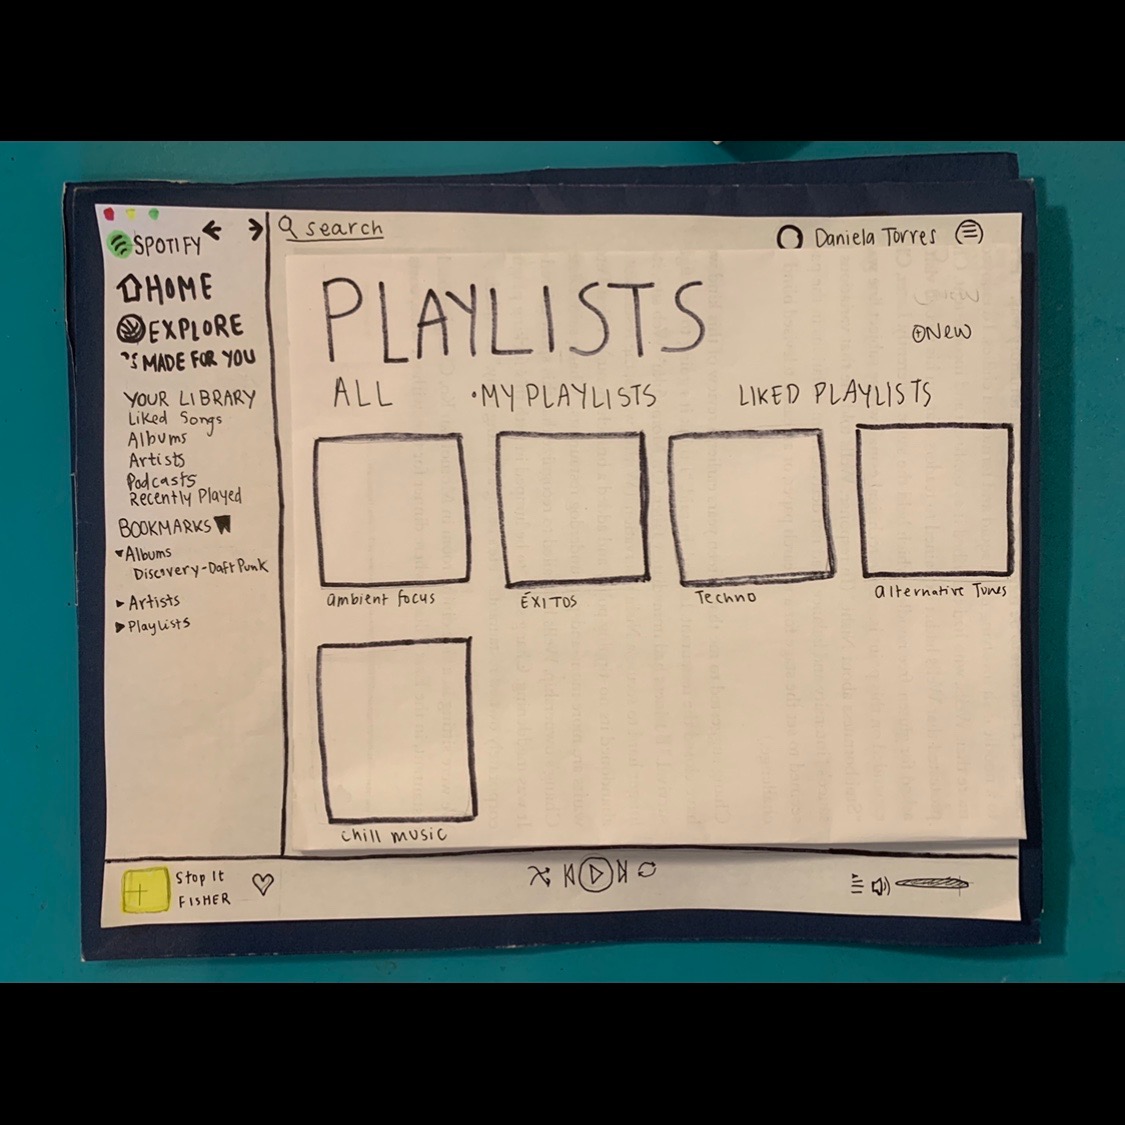 SPOTIFY
search
Daniela Torres
HOME
EXPLORE
MADE FOR YOU
YOUR LIBRARY
Liked Songs
Albums
Artists
Podcasts
Recently Played
BOOKMARKS
Albums
Discovery-Daft Punk
Artists
Playlists
PLAYLISTS
New
ALL
•MY PLAYLISTS
LIKED PLAYLISTS
ambient focus
ÉXITOS
Techno
alternative Tunes
chill music
Stop It
FISHER